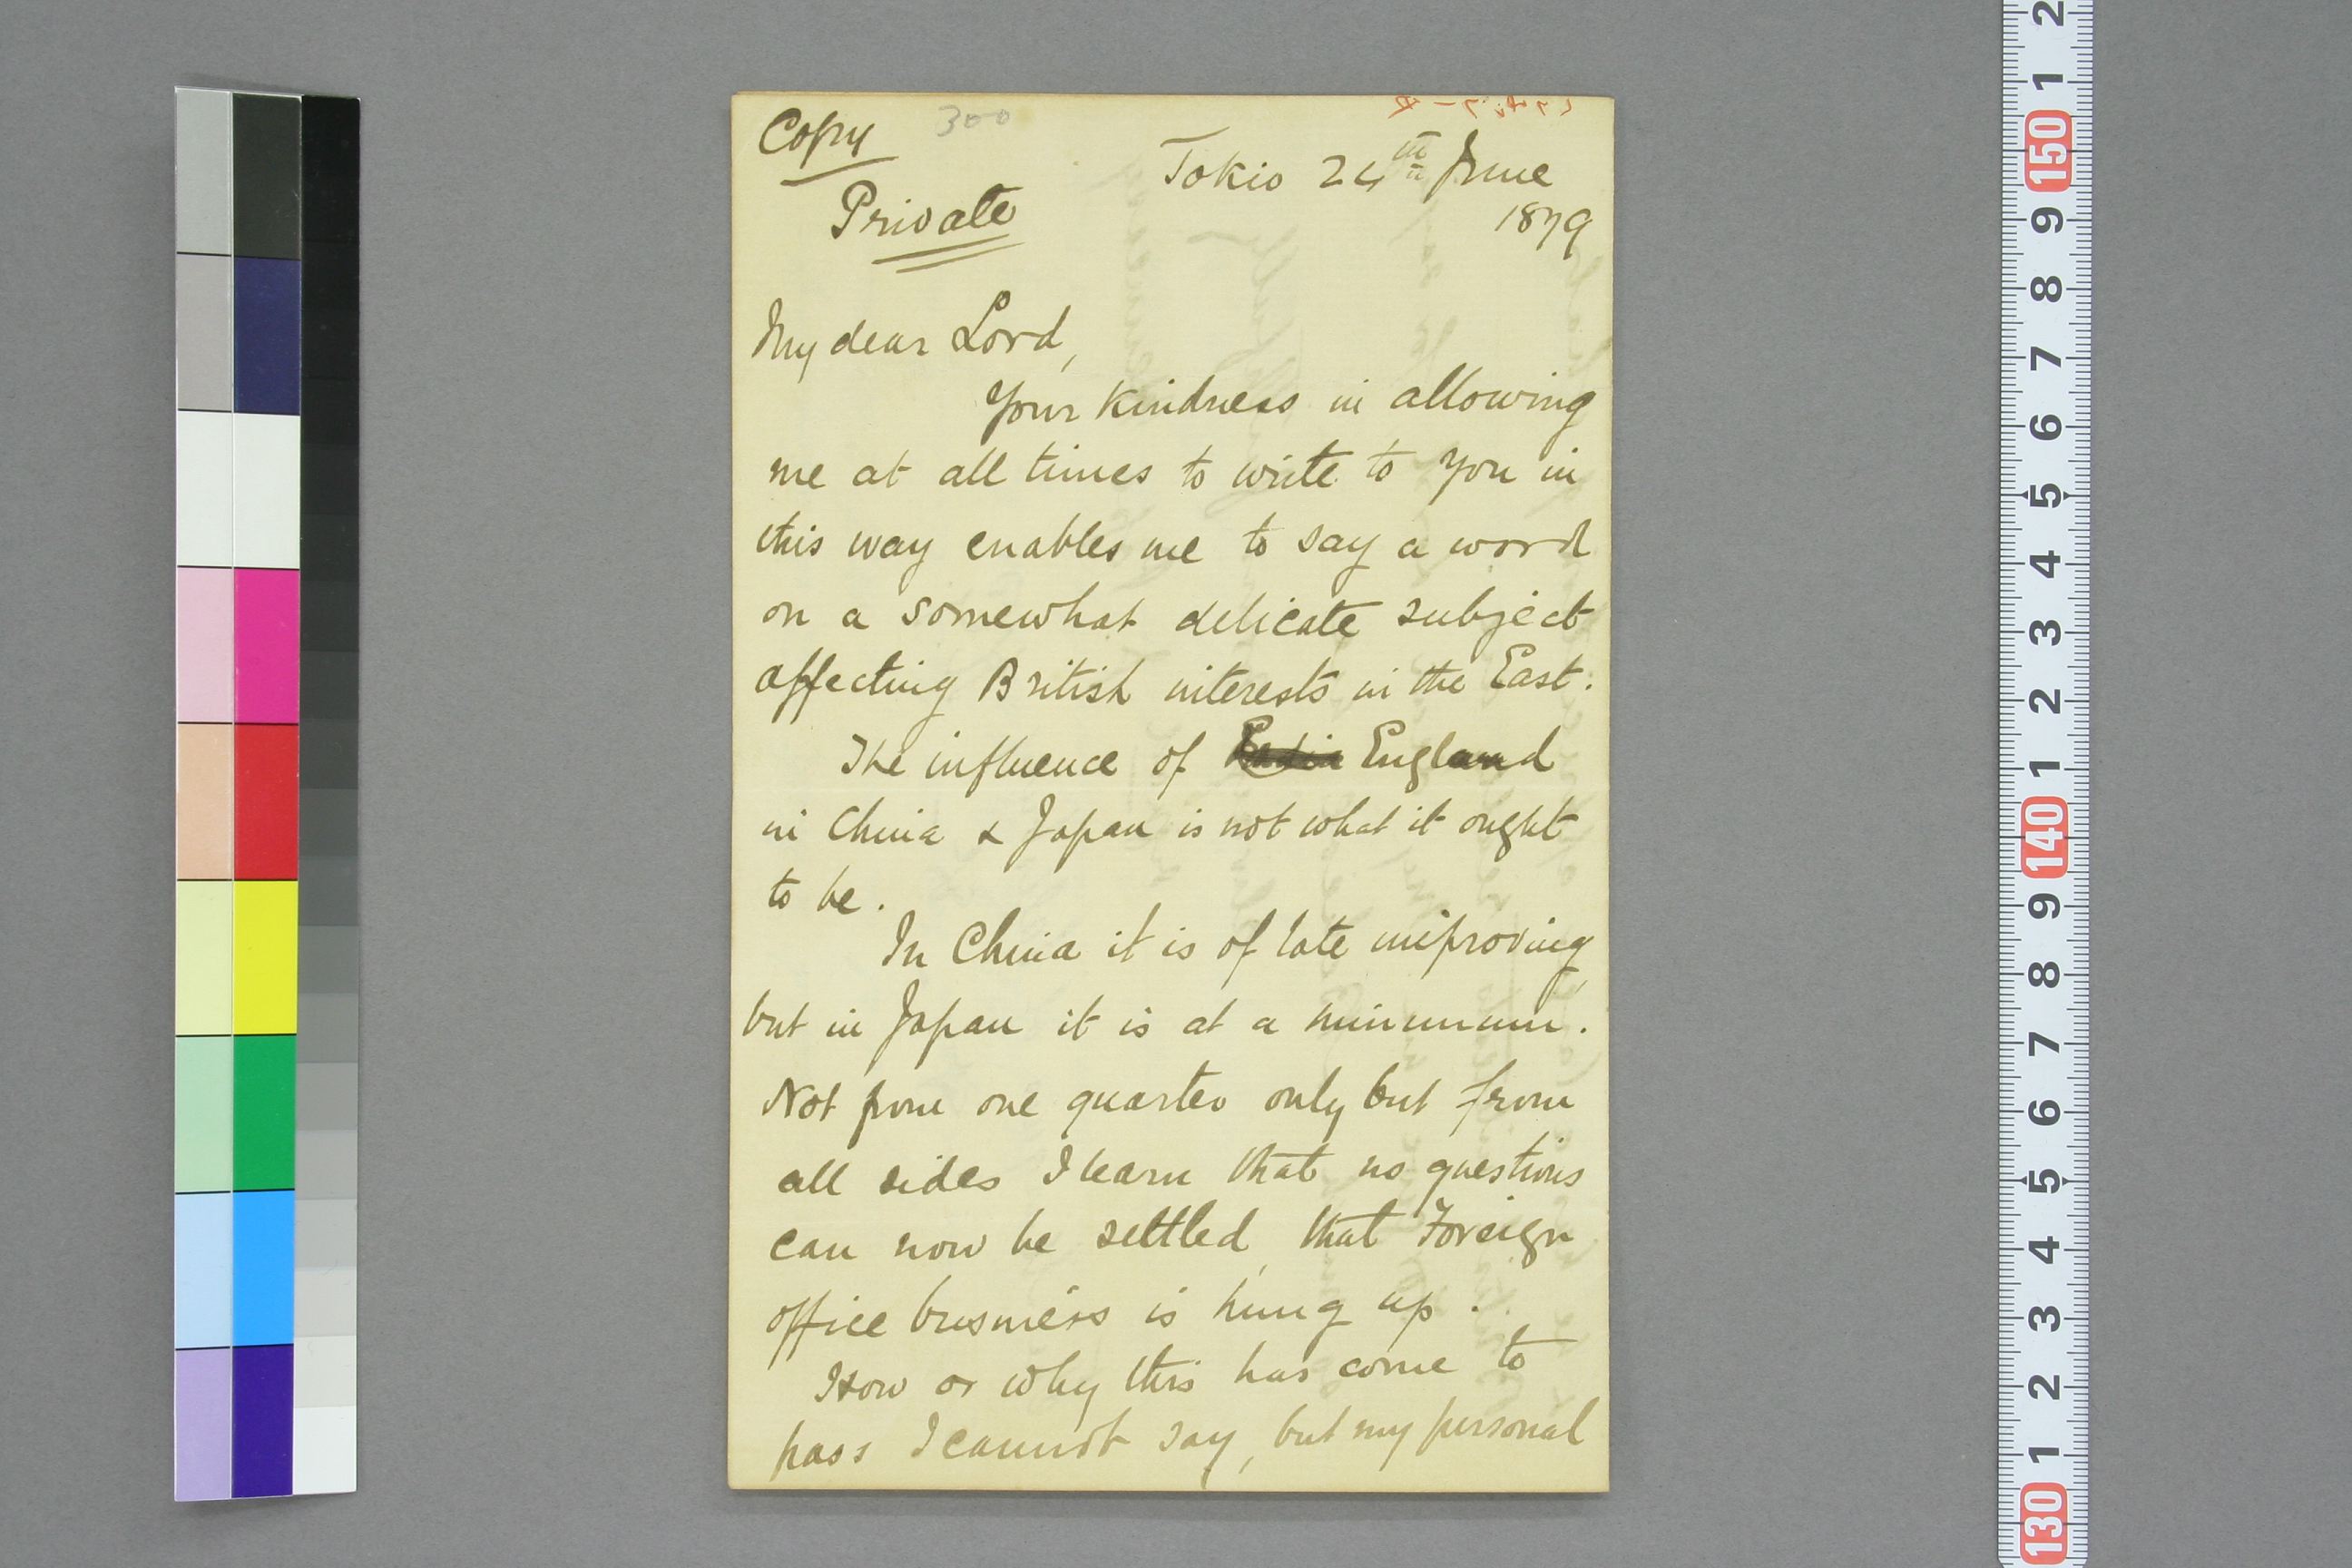 Copy
300
Private
Tokio 24th June
1879
My dear Lord,
Your kindness in allowing
me at all times to write to you in
this way enables me to say a word
on a somewhat delicate subject
affecting British interests in the East.
The influence of England
in China & Japan is not what it ought
to be.
In China it is of late improving,
but in Japan it is at a minimum.
Not from one quarter only but from
all sides I learn that no questions
can now be settled, that Foreign
office business is hung up.
How or why this has come to
pass I cannot say, but my personal
2
1
150
9
8
7
6
5
4
3
2
1
140
9
8
7
6
5
4
3
2
1
130